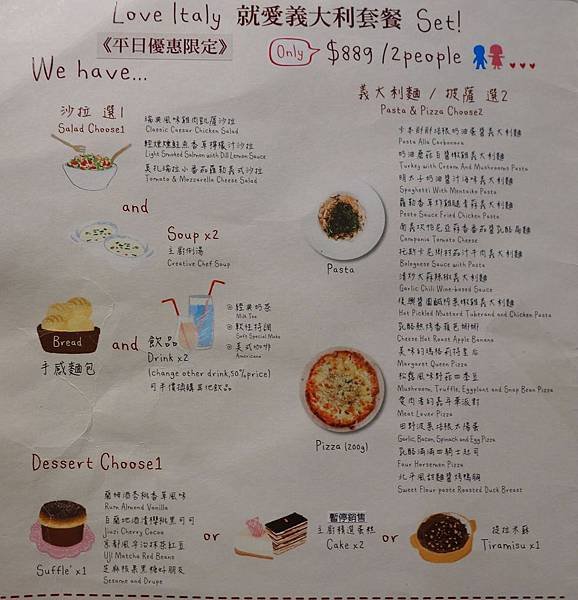 Love Italy 就愛義大利套餐 Set!
《平日優惠限定》
Only $889/2people
We have...
沙拉 選1
Salad Choose1
瑞典風味雞肉凱薩沙拉
Classic Caesar Chicken Salad
輕燻燻鮭魚香草檸檬汁沙拉
Light Smoked Salmon with Dill Lemon Sauce
莫札瑞拉小番茄羅勒義式沙拉
Tomato & Mozzarella Cheese Salad
and
Soup x2
主廚例湯
Creative Chef Soup
Bread
手感麵包
and
飲品
Drink x2
(change other drink,50%price)
可半價換購其他飲品
經典奶茶
Milk Tea
軟性特調
Soft Special Make
美式咖啡
Americano
義大利麵 / 披薩 選2
Pasta & Pizza Choose2
Pasta
Pizza (200g)
卡本尼培根奶油蛋醬義大利麵
Pasta Alla Carbonara
奶油蘑菇白醬嫩雞義大利麵
Turkey with Cream And Mushrooms Pasta
明太子奶油醬汁海味義大利麵
Spaghetti With Mentaiko Pasta
羅勒香草炸雞腿青蒜義大利麵
Pesto Sauce Fried Chicken Pasta
南義坎帕尼亞蒜香番茄醬乳酪扁麵
Campania Tomato Cheese
托斯卡尼街村茄汁牛肉義大利麵
Bolognese Sauce with Pasta
清炒大蒜辣椒義大利麵
Garlic Chili Wine-based Sauce
Hot Pickled Mustard Tuberand and Chicken Pasta
乳酪熱烤香蘋包蝴蝴
Cheese Hot Roast Apple Banana
美味的瑪格莉特皇后
Margaret Queen Pizza
松露風味野菇四季豆
Mushroom, Truffle, Eggplant and Snap Bean Pizza
愛肉者的嘉年華派對
Meat Lover Pizza
田野波菜培根太陽蛋
Garlic, Bacon, Spinach and Egg Pizza
乳酪滿滿四騎士起司
Four Horsemen Pizza
北平風甜麵醬烤鴨胸
Sweet Flour paste Roasted Duck Breast
Dessert Choose1
Suffle' x1
蘭姆酒杏桃香草風味
Rum Almond Vanilla
白蘭地酒漬櫻桃黑可可
Jiuzi Cherry Cocoa
京都風宇治抹茶紅豆
UJI Matcha Red Beans
芝麻核果黑糖好朋友
Sesame and Drupe
or
暫停銷售
主廚精選蛋糕
Cake x2
or
提拉米蘇
Tiramisu x1